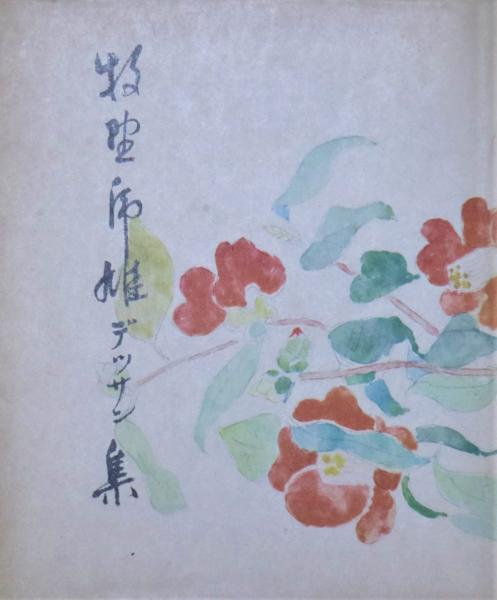 牧野虎雄デッサン集